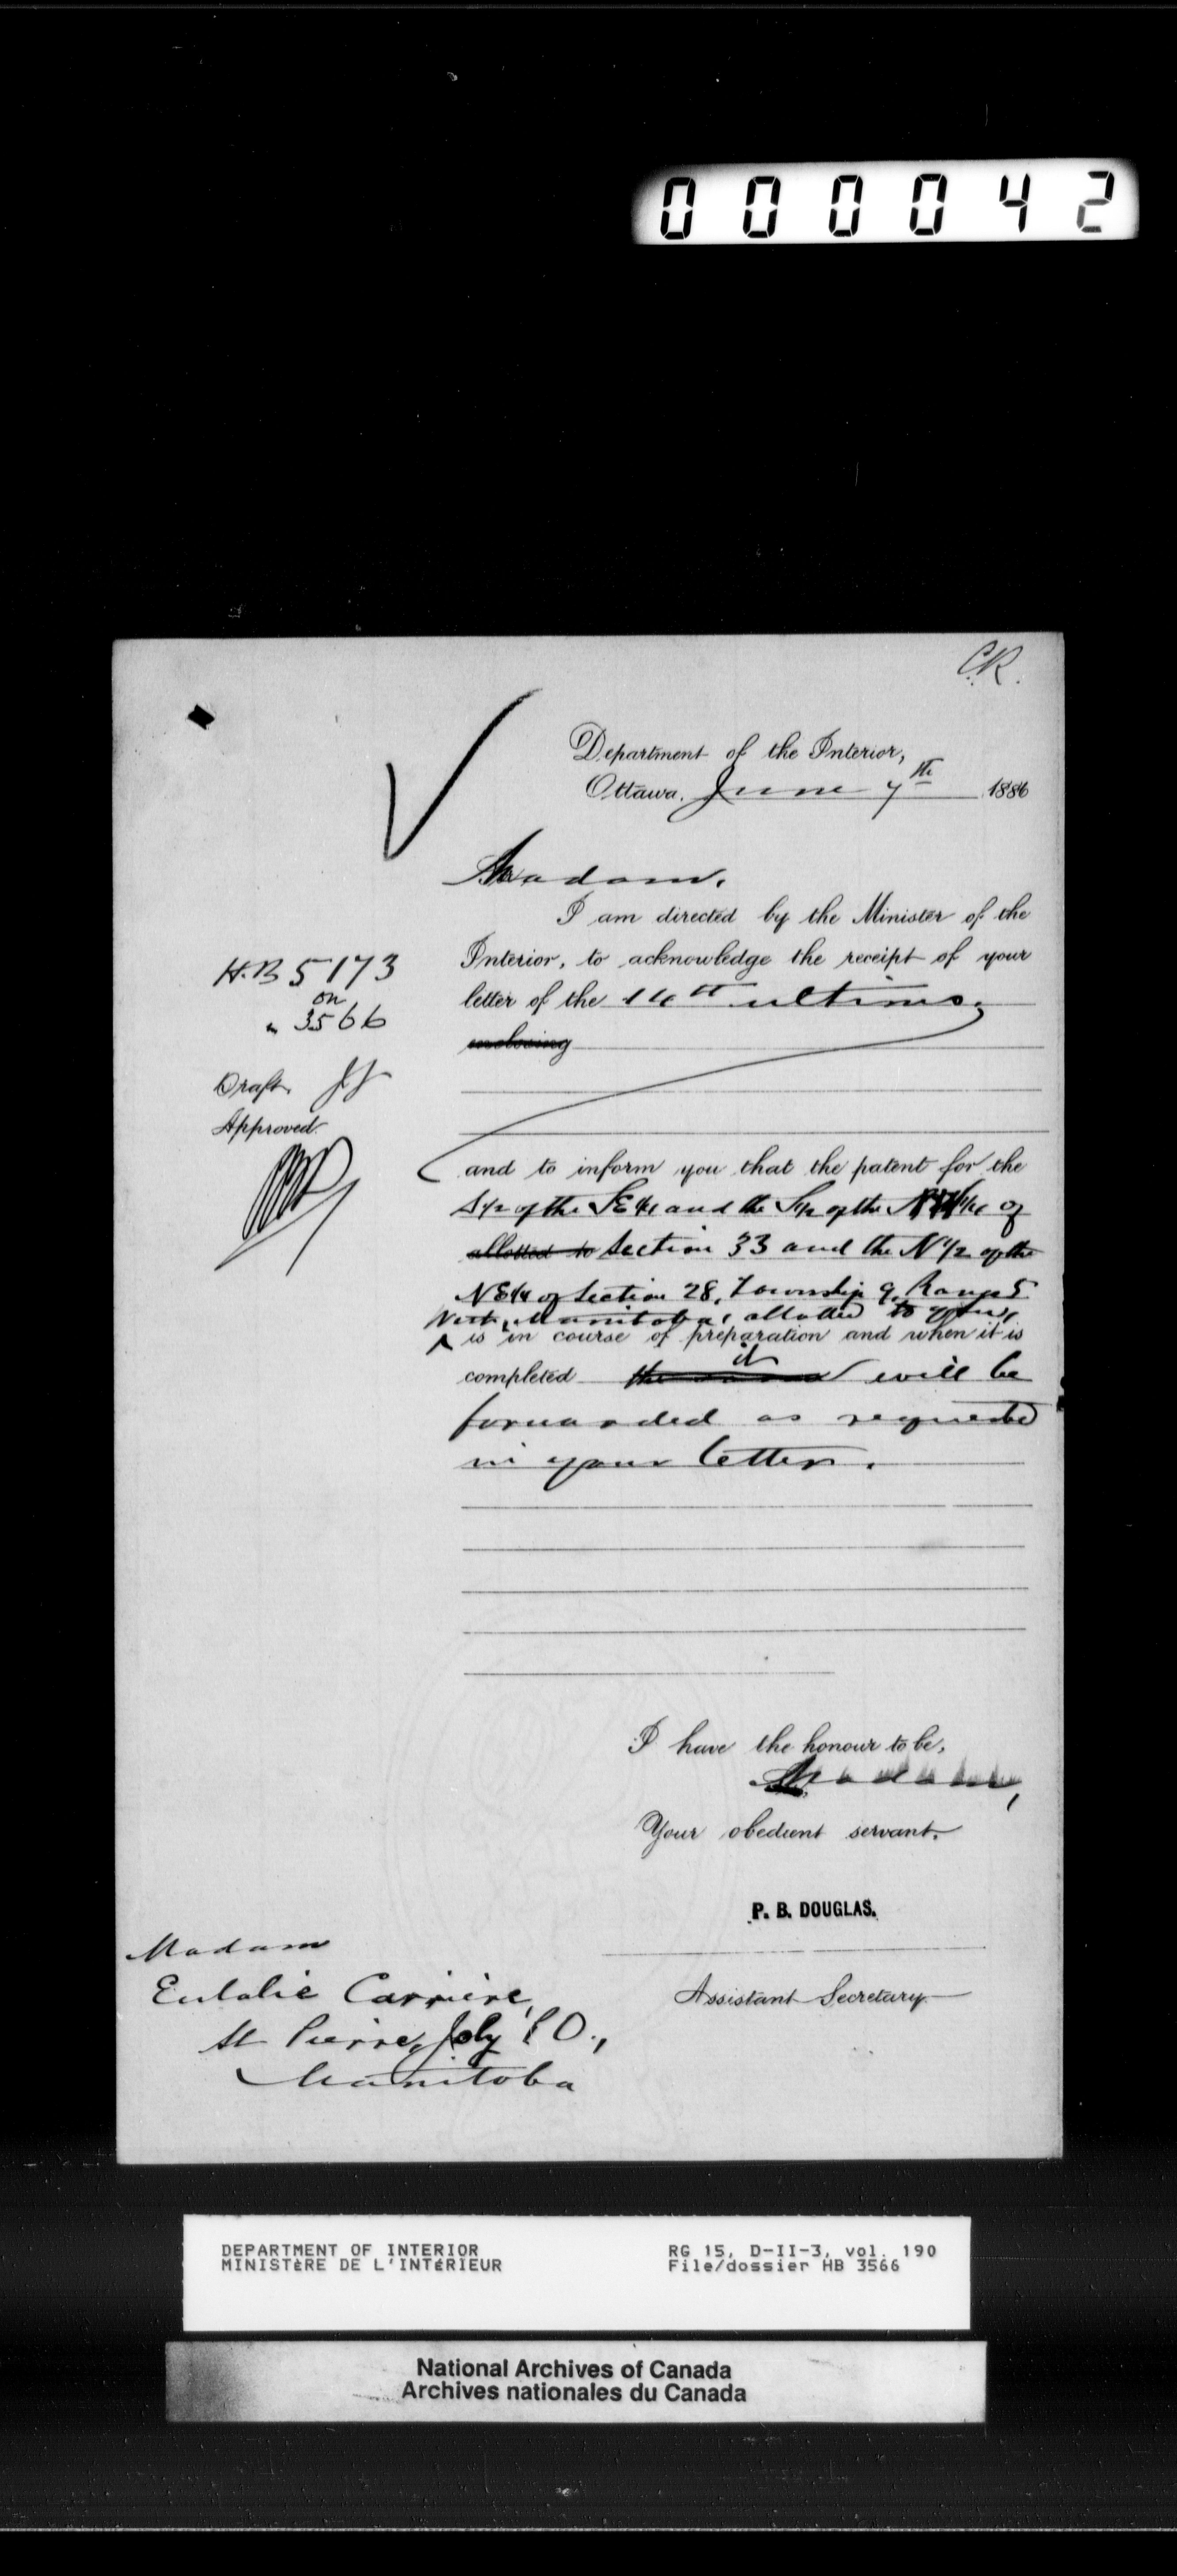 000042
C.R.
Department of the Interior,
Ottawa, June 7th 1886
Madam,
I am directed by the Minister of the
Interior, to acknowledge the receipt of your
H.B 5173
on
" 3566
letter of the ultimo,
enclosing
Draft.
Approved.
and to inform you that the patent for the
S½ of the SE¼ and the S½ of the of
allotted to Section 33 and the N½ of the
NE¼ of Section 28, Township 9, Range 5
Manitoba, allotted to you,
is in course of preparation and when it is
completed it will be
forwarded as requested
in your letter.
I have the honour to be,
Madam,
Your obedient servant.
P. B. DOUGLAS.
Assistant Secretary
Madam
Eulalie Carrière,
St Pierre, Joly P.O.,
Manitoba
DEPARTMENT OF INTERIOR
MINISTÈRE DE L'INTÉRIEUR
RG 15, D-II-3, vol. 190
File/dossier HB 3566
National Archives of Canada
Archives nationales du Canada